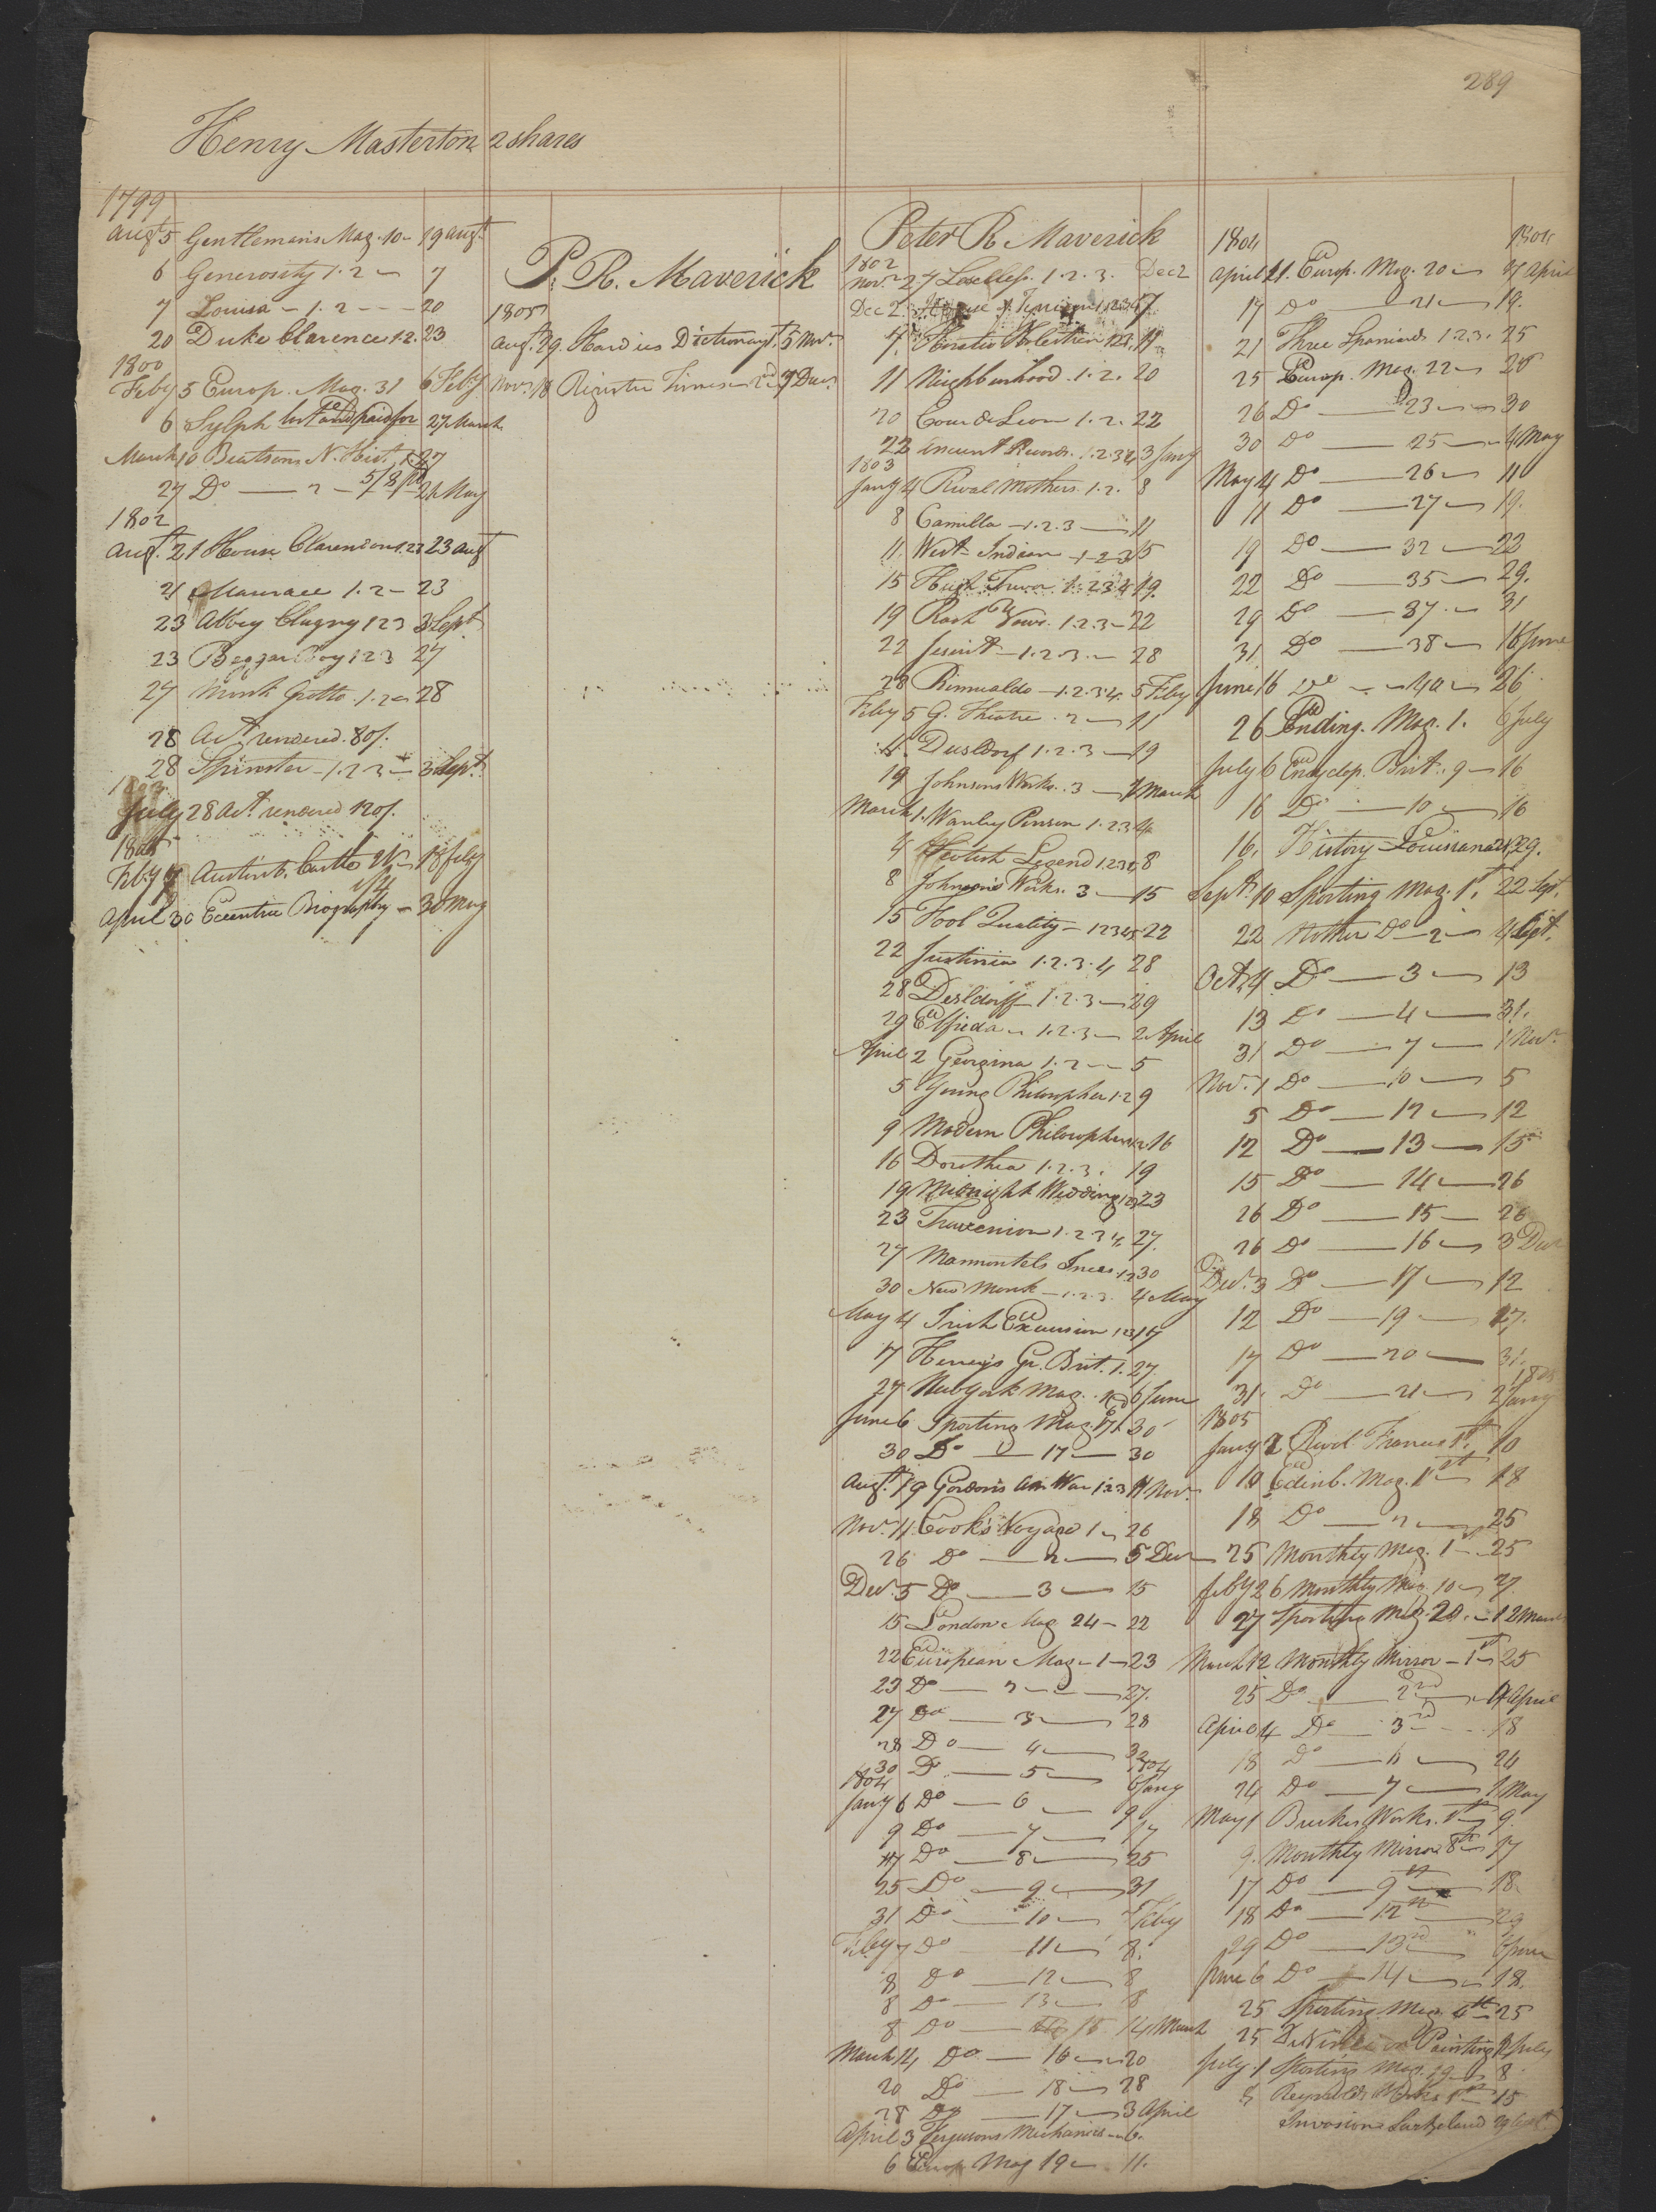 289
Henry Masterton 2 shares
1799
Augt 5 Gentlemans Mag. 10 – 19 augt
6 Generosity 1. 2 – 7
7 Louisa – 1. 2 – – 20
20 Duke Clarence 1. 2. 23
1800
Feby 5 Europ. Mag. 31 6 Feby
6 Sylph lost and paid for 27 March
March 10 Beatsons N. Hist. 1. 27
27 Do — 2 — 5/8 pd 21 May
1802
Augt. 21 House Clarendon 1.2 23 aug
21 Mauraee 1. 2 – 23
23 Abbey Clugny 1 2 3 3 Sept
23 Beggar Boy 1 2 3 27
27 Monk Grotto. 1. 2 – 28
28 Act rendered. 80/.
28 Spinster – 1. 2 3 – 3 Sept
1803
July 28 Act. rendered 120/.
1805
Feby 7 Austenb. Castle 2/6 18 feby
1/4
April 30 Eccentric Biography – 30 May
P. R. Maverick
1805
Aug. 29. Hardies Dictionary 1. 5 Nov.
Nov. 18 Register Times – 2nd 7 Decr
Peter R Maverick
1802
Nov. 27 1. 2. 3. Dec 2
Dec 2. House of Tynian 1. 2 3 4 7
7. Horatio Holstein 1. 2. 3. 11
11 Neighbourhood. 1. 2. 20
20 Coeur de Leon 1. 2. 22
22 Ancient Records. 1. 2 3 4 3 Jany
1803
Jany 4 Rival Mothers. 1. 2. 8
8 Camilla – 1. 2. 3 — 11
11. West Indian – 1 – 2 3 15
15 Hugh Trevor 1. 2 3 4 19.
19 Rash Vows. 1. 2. 3 – 22
22 Jesuit – 1. 2. 3. – 28
28 Rimualdo – 1. 2. 3 4. 5 Feby
Feby 5 G. Theatre. 2 — 11
11. Dusldorf 1. 2. 3 — 19
19 Johnsons Works. 3 — 1 March
March 1. Wanley Penson 1. 2 3 4
4 Scotish Legend 1 2 3 4 8
8 Johnson's Works. 3 — 15
15 Fool Quality – 1 2 3 4 5 22
22 Justinia 1. 2. 3. 4 28
28 Dusldorff 1. 2. 3 — 29
29 Elfrida – 1. 2. 3 – 2 April
April 2 Georgina 1. 2 — 5
5 Young Philosopher 1. 2 9
9 Modern Philosophers 1 2 16
16 Dorothea 1. 2. 3. 19
19 Midnight Wedding 1 2 3 23
23 Travenion 1. 2 3 4. 27.
27 Marmontels Incas 1. 2 30
30 New Monk – 1. 2. 3. 4 May
May 4 Irish Excursion 1 2 3 17
17 Henry's Gr. Brit. 1. 27.
27 Newyork Mag. 6 June
June 6 Sporting Mag. 17. 30
30 Do — 17 — 30
Augt. 19 Gordon's Am War 1. 2 3 11 Nov.
Nov. 11. Cook's Voyage 1 – 26
26 Do — 2 — 5 Decr
Decr. 5 Do — 3 — 15
15 London Mag 24 – 22
22 European Mag – 1 – 23
23 Do — 2 — 27.
27 Do — 3 — 28
28 Do — 4 — 30
30 Do — 5 — 1804
6 Jany
1804
Jany 6 Do — 6 — 9
9 Do — 7 — 17
17 Do — 8 — 25
25 Do — 9 — 31
31 Do — 10 — 7 Feby
Feby 7 Do — 11 — 8.
8 Do — 12 — 8
8 Do — 13 — 8
8 Do — 15 14 March
March 14 Do — 16 — 20
20 Do — 18 — 28
28 Do — 17 — 3 April
April 3 Fergusons Mechanics – 6.
6 Europ Mag 19 – 11.
1804 1804
April 11. Europ. Mag. 20 — 17 April
17 Do — 21 — 19.
21 Three Spaniards 1. 2 3. 25
25 Europ. Mag. 22 – 26
26 Do — 23 — 30
30 Do — 25 — 4 May
May 4 Do — 26 — 11
11 Do — 27 — 19.
19 Do — 32 — 22
22 Do — 35 — 29.
29 Do — 37. — 31
31 Do — 38 — 16 June
June 16 Do — 40 — 26
26 Ending. Mag. 1. 6 July
July 6 Encyclop. Brit. 9 — 16
16 Do — 10 — 16
16. History Louisiana 29.
Sept. 10 Sporting Mag. 1st. 22 Sept.
22 Nother Do — 2 — 4 Sept.
Oct. 4 Do — 3 — 13
13 Do — 4 — 31.
31 Do — 7 — 1 Nov.
Nov. 1 Do — 10 — 5
5 Do — 12 — 12
12 Do — 13 — 15
15 Do — 14 — 26
26 Do — 15 — 26
26 Do — 16 — 3 Decr
Decr. 3 Do — 17 — 12
12 Do — 19 — 17.
17 Do — 20 — 31.
1805
31. Do — 21 — 2 Jany
1805
Jany 2 Revol. France 1st. 10
10 Edinb. Mag. 1st 18
18 Do — 2 — 25
25 Monthly Mag. 1st – 25
Feby 26 Monthly Mag. 10 – 27.
27 Sporting Mag. 20. – 12 March
March 12 Monthly Mirror – 1st 25
25 Do. — 2nd — 4 April
April 4 Do — 3rd — 18
18 Do — 6 — 24
24 Do — 7 — 1 May
May 1 Burkes Works. 1st 9.
9. Monthly Mirror 8th 17
17 Do — 9th — 18.
18 Do — 12th — 29
29 Do — 13rd 6 June
June 6 Do — 14 — 18.
25 Sporting Mag. 4th 25
25 Painting 1 July
July. 1 Sporting Mag. 19 – 8
8 Reynolds Works 1st 15
Invasion Switzerland 29